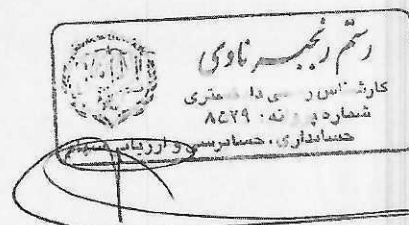 رستم رنجبر ناوی
کارشناس رسمی دادگستری
شماره پروانه: ۸۵۷۹
حسابداری، حسابرسی و ارزیابی سهام